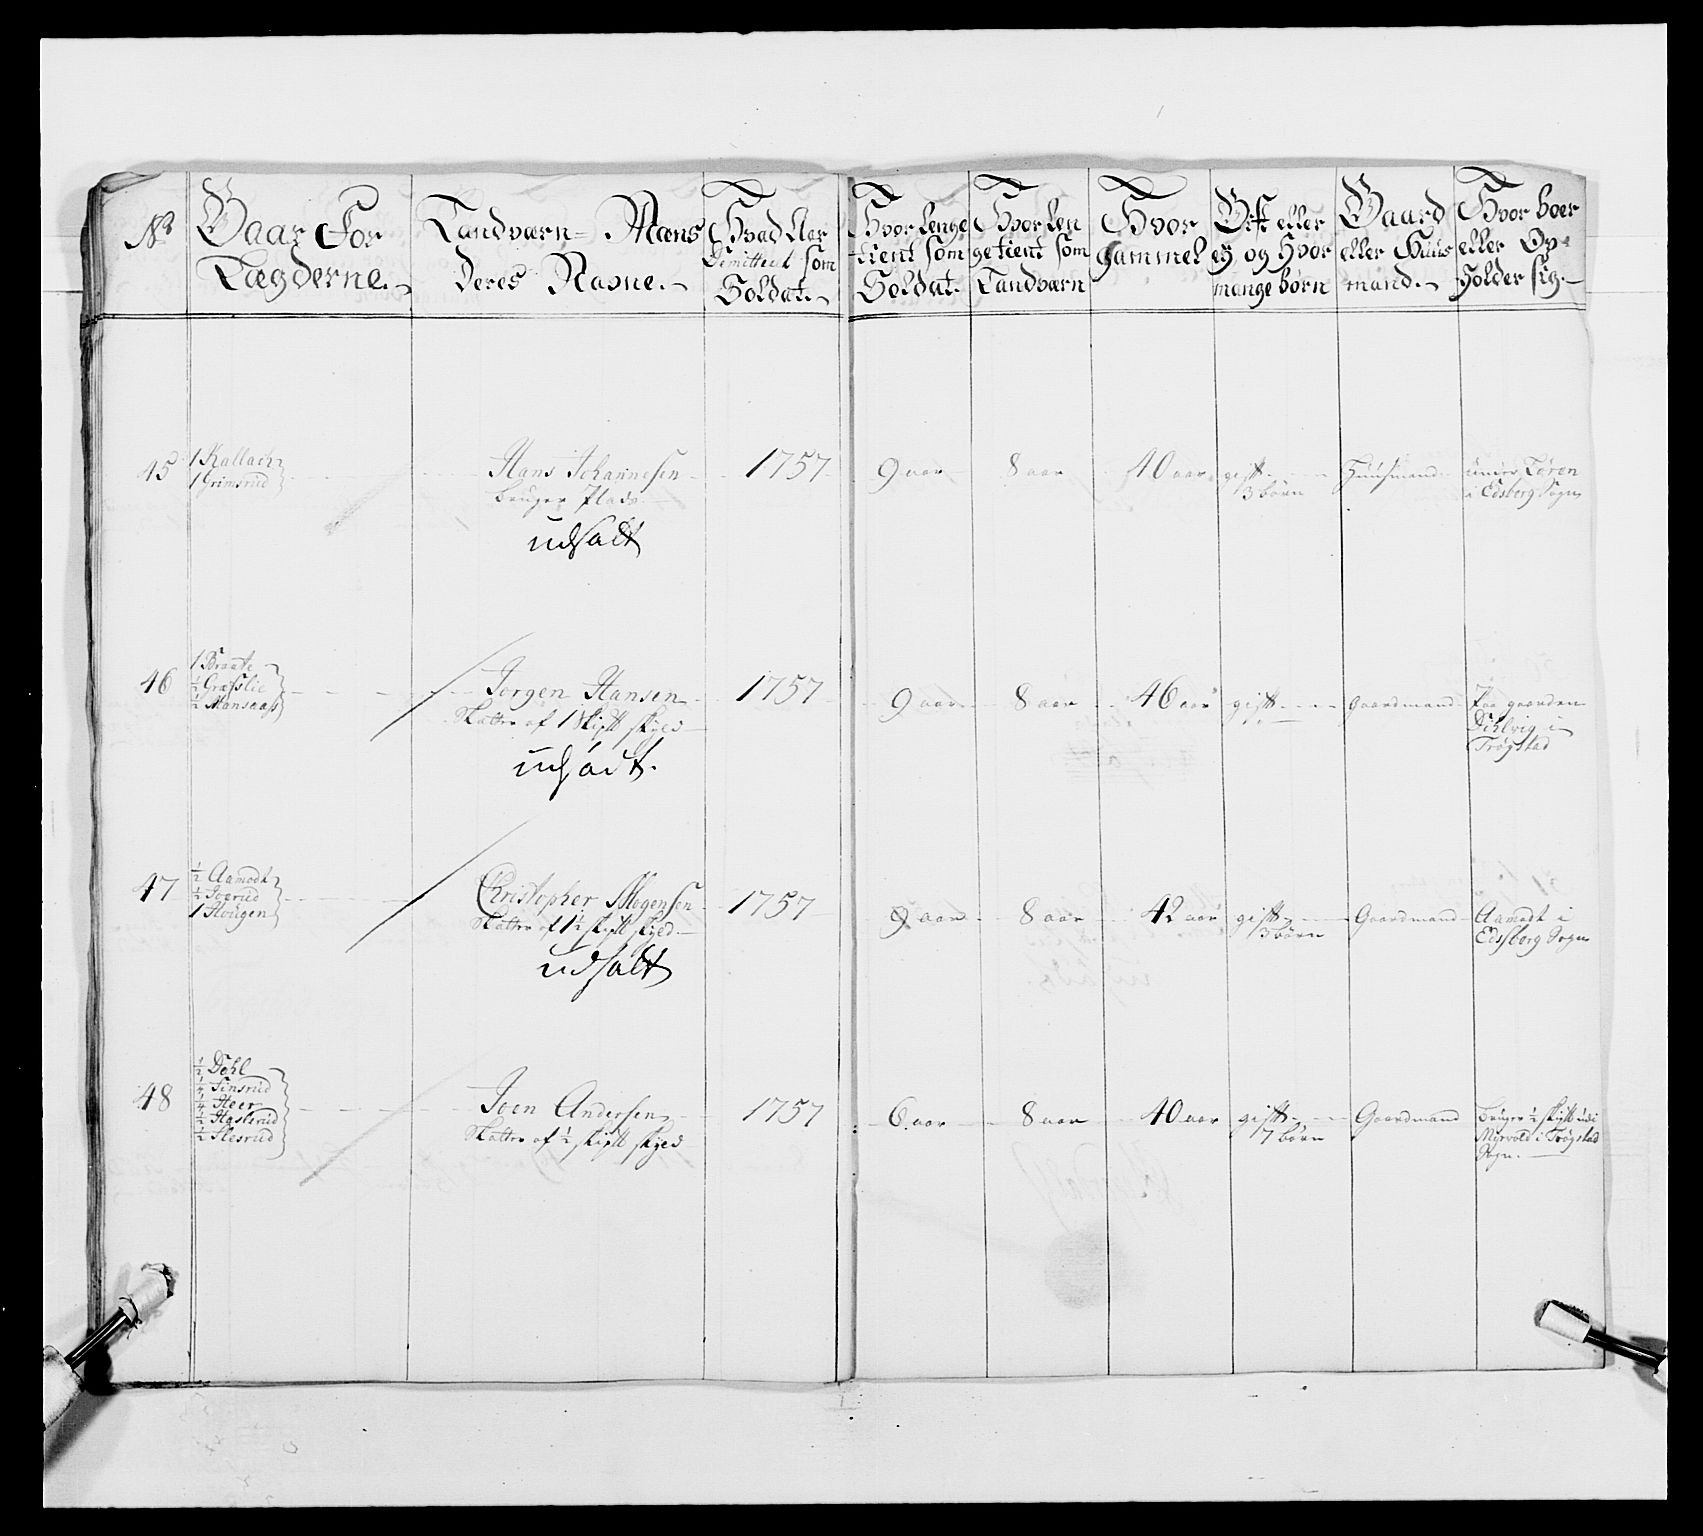 No
Gaar For
Lægderne.
Landværn-Mæns
Deres Navne.
Hvad Aar
Dimittert som
Soldat.
Hvor lenge
tient som
Soldat.
Hvor len
ge tient som
Landværn
Hvor
gammel
Gift eller
ey og Hvor
mange børn
Gaard
eller Huus
mand.
Hvor boer
eller Op-
Holder sig.
45
1 Kallach
1 Grimsrud
Hans Johannesen
bruger Plads
udsatt
1757
9 aar
8 aar
40 aar
gift
3 børn
Huusmand
under
i Edsberg Sogn
46
1 Braate
½ Græsslie
½ Monsaas
Jørgen Hansen
Skatter af 1 Skip℔ skyld
udsatt.
1757
9 aar
8 aar
46 aar
gift
gaardmand
Paa gaarden
Dihlvig i
Trøgstad
47
½ Aamodt
½
1 Hougen
Christopher Mogensen
Skatter af 1½ skip℔ skyld
udsatt
1757
9 aar
8 aar
42 aar
gift
3 børn
Gaardmand
Aamodt i
Edsberg Sogn
48
½ Dehl
¼ Finsrud
¼ Heer
½
½ Slesrud
Joen Andersen
Skatter af ½ skip℔ skyld
1757
6 aar
8 aar
40 aar
gift
7 børn
Gaardmand
bruger ½ skip℔ udi
Myrvold i Trøgstad
Sogn.